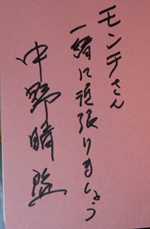 モンチさん
一緒に頑張りましょう
中野晴